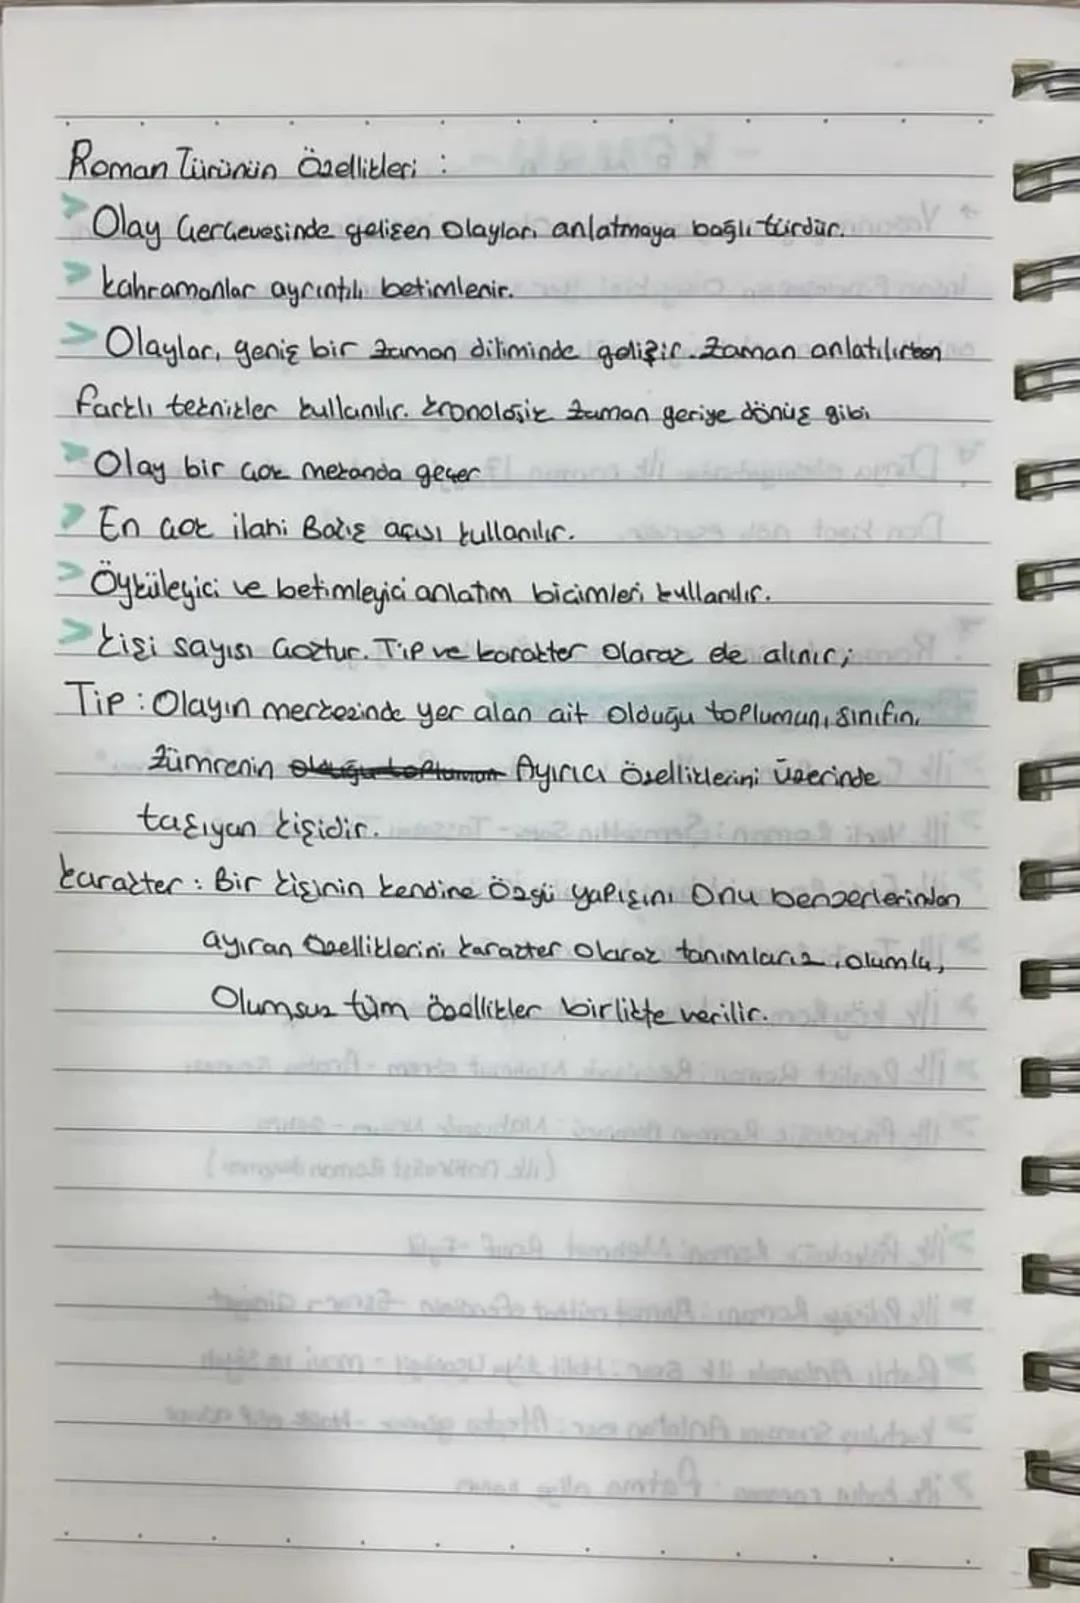 Roman Türünün Özellikleri :
> Olay Çerçevesinde gelişen Olayları anlatmaya bağlı türdür.
> kahramanlar ayrıntılı betimlenir.
> Olaylar, geniş bir zaman diliminde gelişir. Zaman anlatılırken
farklı teknikler kullanılır. kronolojik zaman geriye dönüş gibi
> Olay bir çok mekanda geçer
> En çok ilahi Bakış açısı kullanılır.
> Öyküleyici ve betimleyici anlatım biçimleri kullanılır.
> kişi sayısı Çoktur. Tip ve karakter Olarak ele alınır;
Tip : Olayın merkezinde yer alan ait olduğu toplumun, sınıfın,
zümrenin olduğu toplumun Ayırıcı özelliklerini üzerinde
taşıyan kişidir.
karakter : Bir kişinin kendine özgü yapısını Onu benzerlerinden
ayıran özelliklerini karakter olarak tanımlarız, olumlu,
Olumsuz tüm özellikler birlikte verilir.